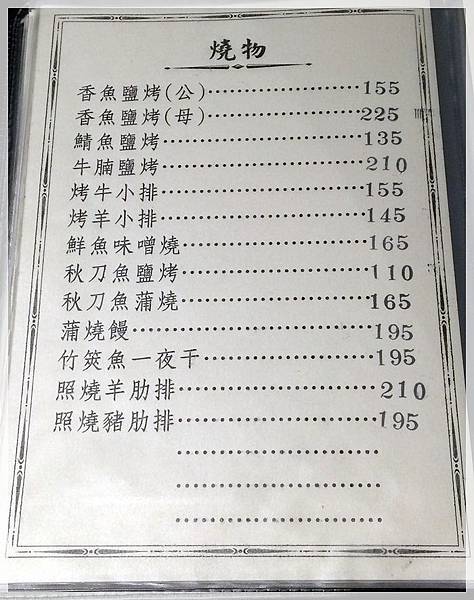 燒物
香魚鹽烤(公)····················155
香魚鹽烤(母)····················225
鯖魚鹽烤····················135
牛腩鹽烤····················210
烤牛小排····················155
烤羊小排····················145
鮮魚味噌燒····················165
秋刀魚鹽烤····················110
秋刀魚蒲燒····················165
蒲燒饅····················195
竹筴魚一夜干····················195
照燒羊肋排····················210
照燒豬肋排····················195